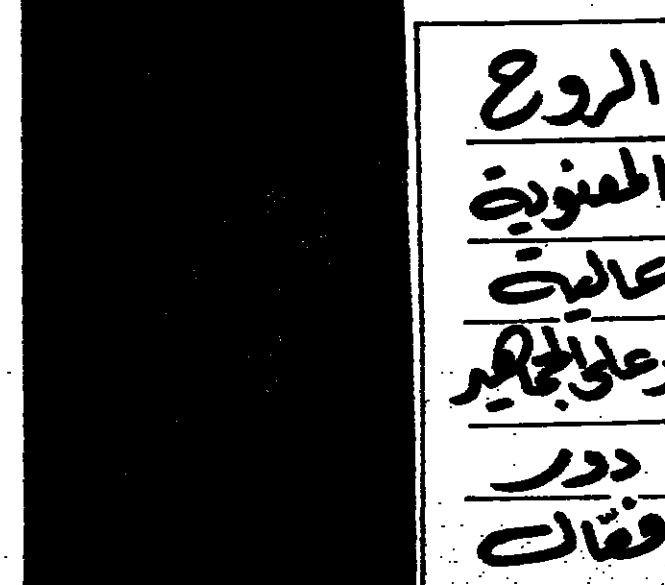 الروح
المعنوية
عالية
وعلى الجماهير
دور
فعّال